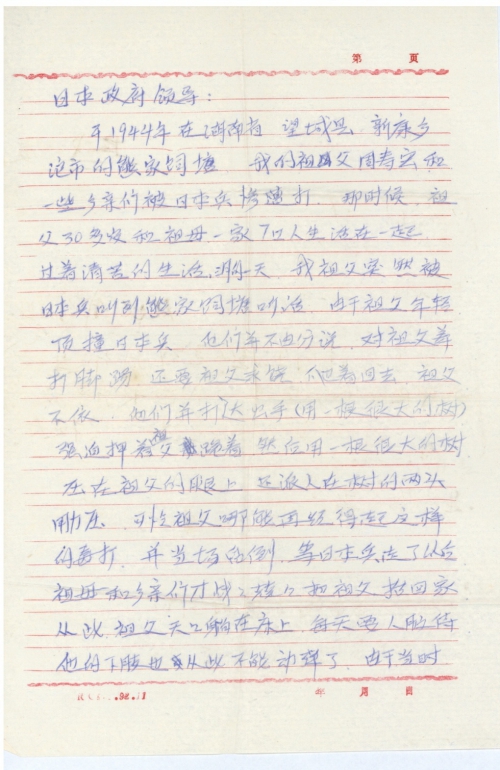 第 页
日本政府领导:
于1944年在湖南省 望城县 新康乡
沱市的 家祠堂 我们祖父周寿 和
一些乡亲们被日本兵 打. 那时候 祖
父30多岁和祖母一家7口人生活在一起
过着清苦的生活, 一天 我祖父突然被
日本兵叫到 家祠堂 话 由于祖父年轻
顶撞日本兵 他们并不由分说 对祖父拳
打脚踢 还要祖父求饶 着回去 祖父
不依. 他们并打 出手(用一根很大的树)
强迫押着祖父跪着 然后用一根很大的树
压在祖父的腿上 还派人在树的两头
用力压. 可怜祖父哪能再经得起这样
的毒打. 并当场 倒. 等日本兵走了以后
祖母和乡亲们才战战 把祖父抬回家
从此 祖父天天躺在床上 每天要人服侍
他的下肢也从此不能动弹了. 由于当时
.92.11 年 月 日